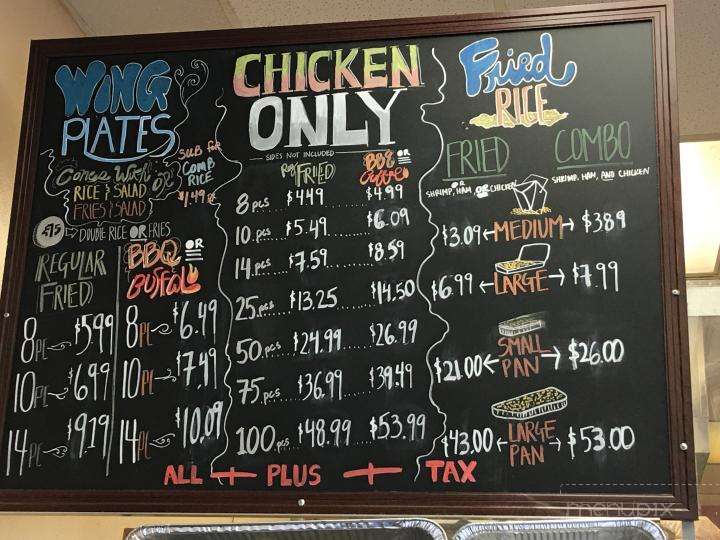 WING
PLATES
Comes With
RICE & SALAD OR
FRIES & SALAD
SUB for
COMB
RICE
$1.49
DOUBLE RICE OR FRIES
REGULAR
FRIED
BBQ OR
BUFFALO
8PC $5.99 8PC $6.49
10PC $6.99 10PC $7.49
14PC $9.19 14PC $10.09
CHICKEN
ONLY
SIDES NOT INCLUDED
Reg FRIED BBQ OR
Buffalo
8 pcs $4.49 $4.99
10 pcs $5.49 $6.09
14 pcs $7.59 $8.59
25 pcs $13.25 $14.50
50 pcs $24.99 $26.99
75 pcs $36.99 $39.49
100 pcs $48.99 $53.99
Fried
RICE
FRIED COMBO
SHRIMP, HAM, OR CHICKEN SHRIMP, HAM, AND CHICKEN
$3.09 MEDIUM $3.89
$6.99 LARGE $7.99
SMALL
$21.00 PAN $26.00
$43.00 LARGE $53.00
PAN
ALL PLUS TAX
menupix